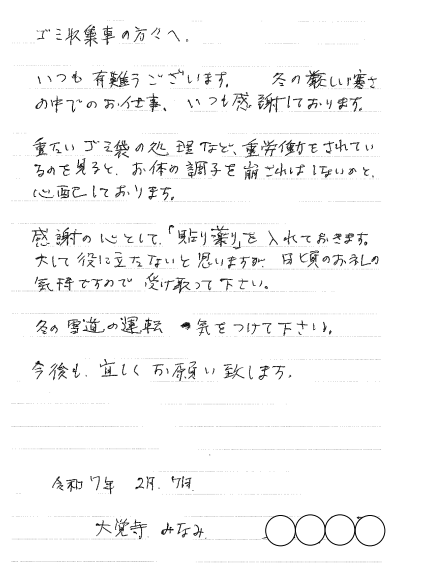 ゴミ収集車の方々へ。
いつも有難うございます。 冬の厳しい寒さ
の中でのお仕事、いつも感謝しております。
重たいゴミ袋の処理など、重労働をされてい
るのを見ると、お体の調子を崩さればしないかと、
心配しております。
感謝の心として、「貼り薬り」を入れておきます。
大して役に立たないと思いますが、日頃のお礼の
気持ですので受け取って下さい。
冬の雪道の運転 気をつけて下さい。
今後も、宜しくお願い致します。
令和7年 2月 7日
大覚寺 みなみ